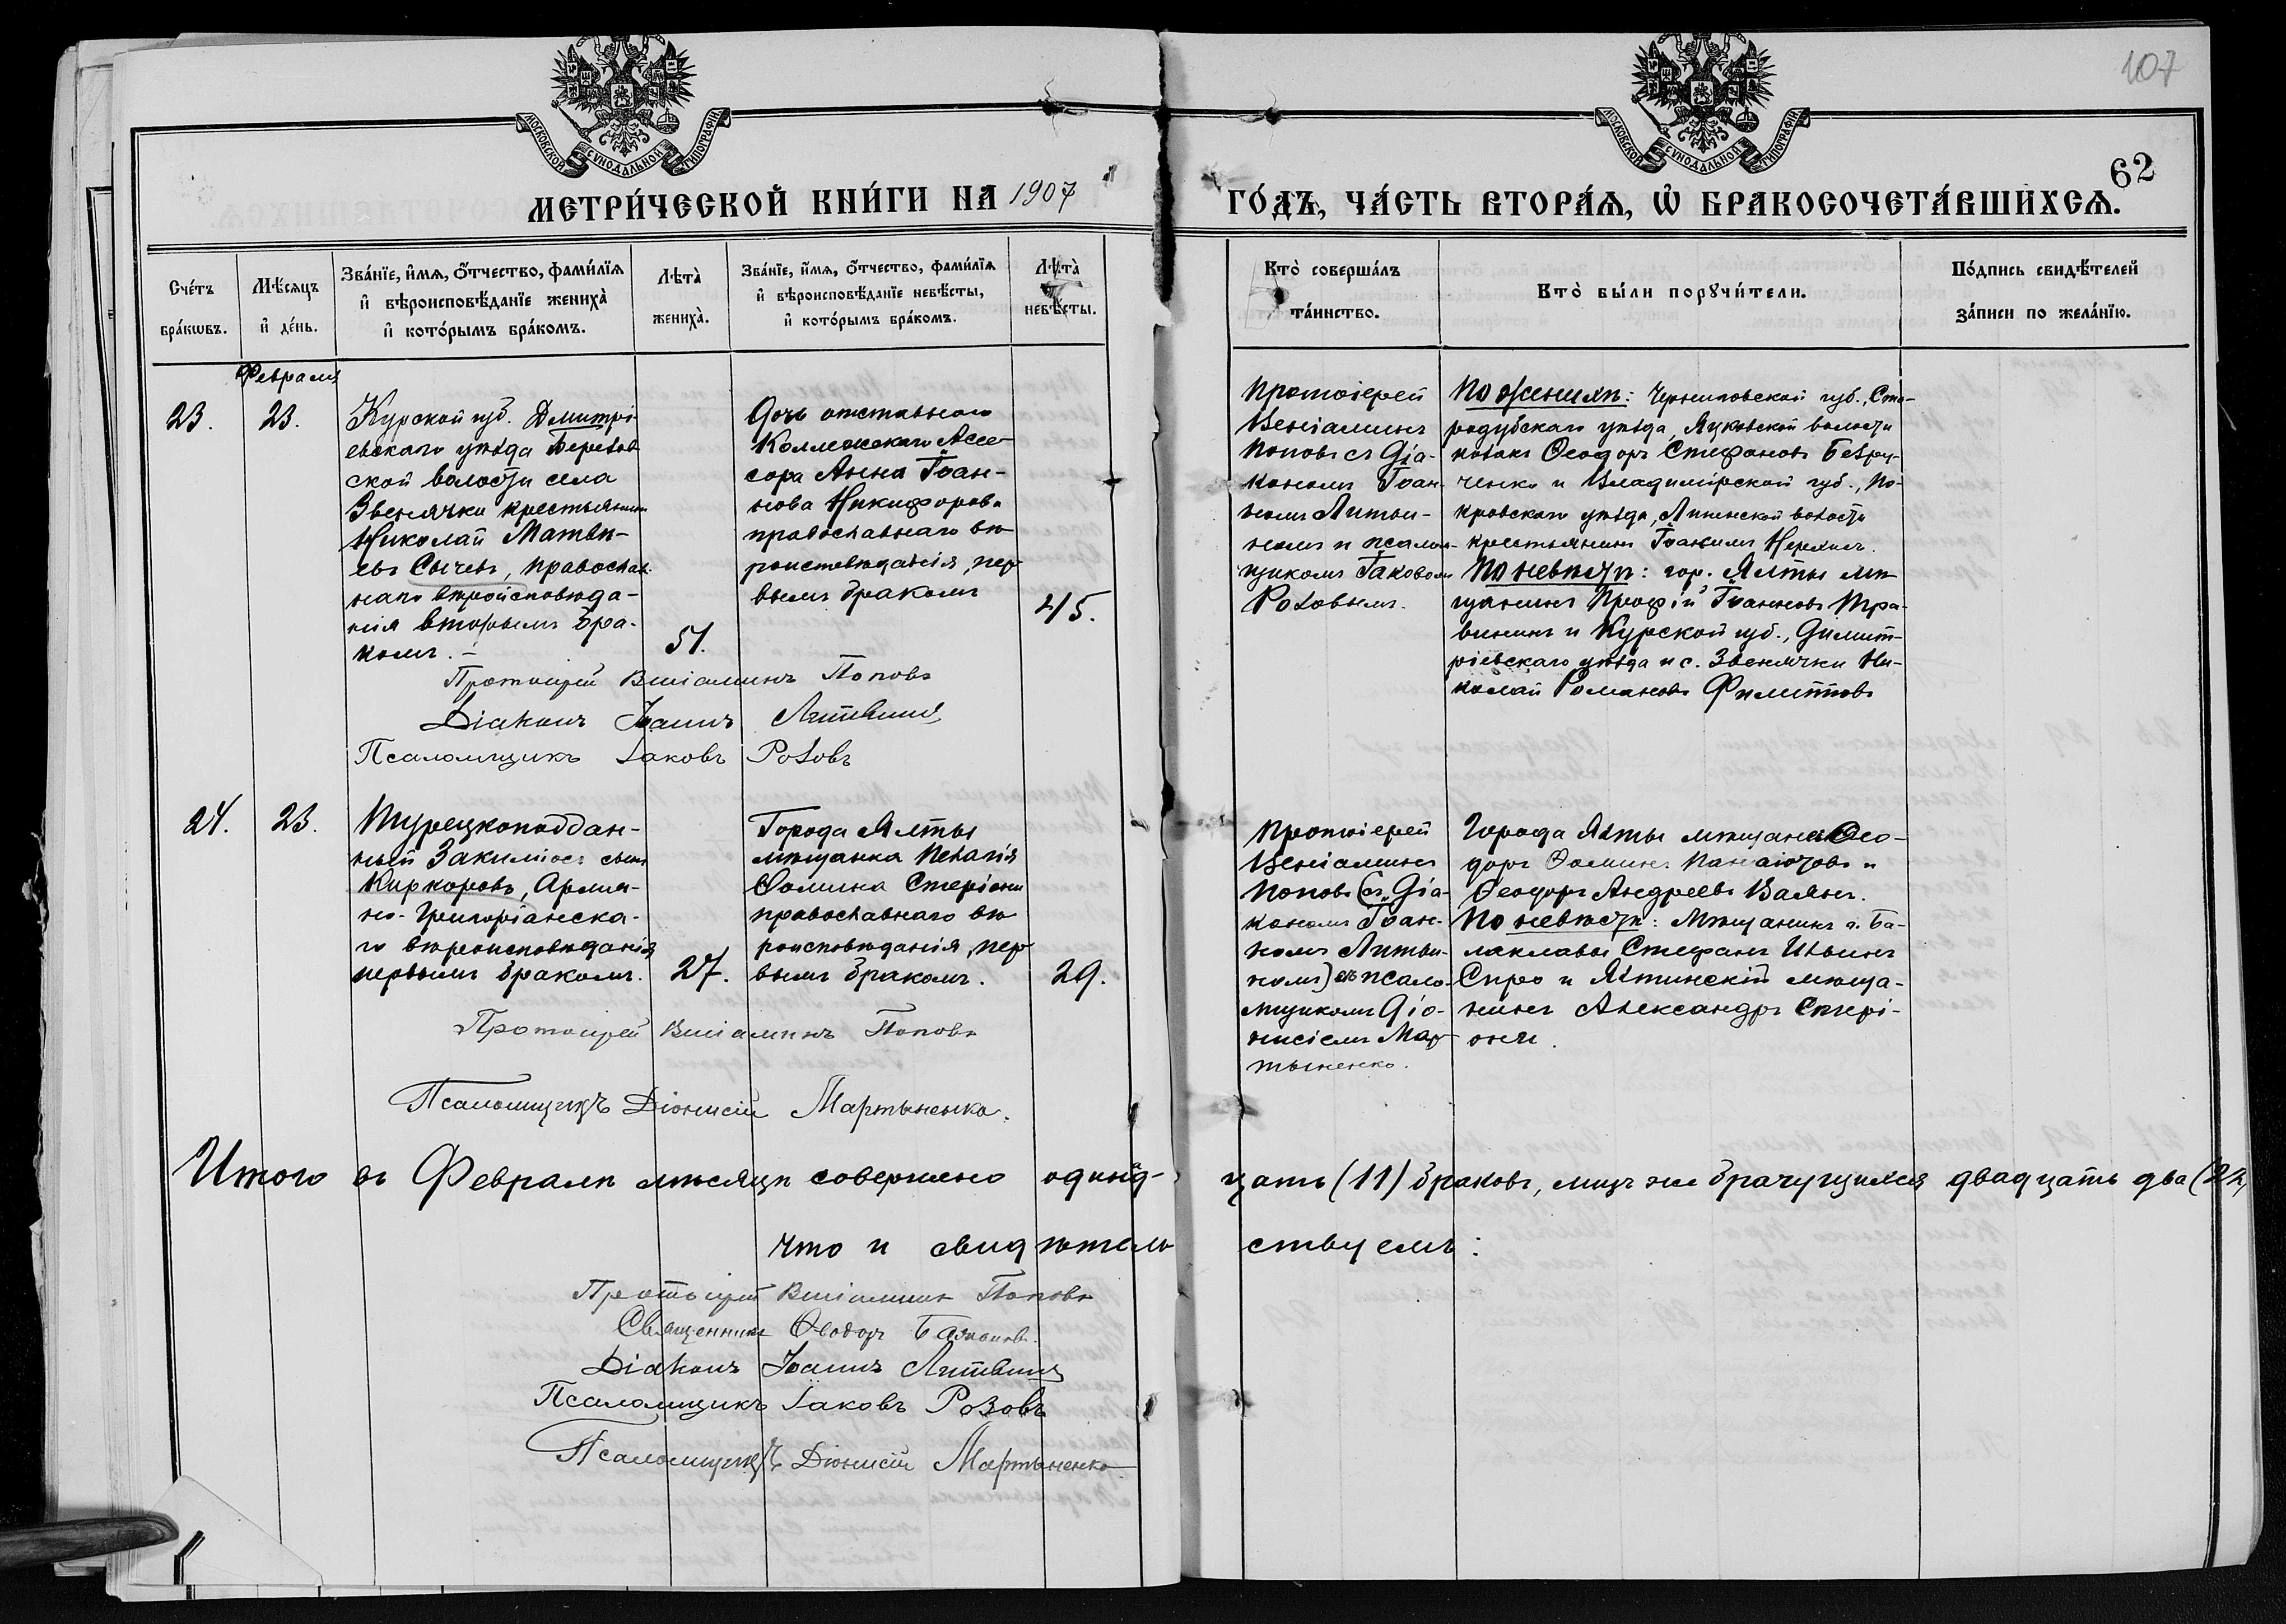 107
62
МОСКОВСКОЙ СѴНОДАЛЬНОЙ ТИПОГРАФІИ
МОСКОВСКОЙ СѴНОДАЛЬНОЙ ТИПОГРАФІИ
МЕТРИ́ЧЕСКОЙ КНИ́ГИ НА 1907 ГО́ДЪ, ЧА́СТЬ ВТОРА́Ѧ, Ѽ БРАКОСОЧЕТА́ВШИХСѦ.
Сче́тъ
бра́кѡвъ.
Мѣ́сяцъ
и҆ де́нь.
Зва́нїе, и҆́мѧ, ѻ҆́тчество, фами́лїѧ
и҆ вѣроисповѣ́данїе жениха̀
и҆ кото́рымъ бра́комъ.
Лѣта̀
жениха̀.
Зва́нїе, и҆́мѧ, ѻ҆́тчество, фами́лїѧ
и҆ вѣроисповѣ́данїе невѣ́сты,
и҆ кото́рымъ бра́комъ.
Лѣта̀
невѣ́сты.
Кто̀ соверша́лъ
та́инство.
Кто̀ бы́ли порꙋчи́тели.
По́дпись свидѣ́телей
за́писи по жела́нїю.
Февраля
23.
23.
Курской губ. Дмитрі-
евскаго уѣзда Березов
ской волости села
Звенячки крестьянинъ
Николай Матвѣ-
евъ Сычевъ, православ-
наго вѣроисповѣда-
нія вторымъ бра-
комъ. -
51.
Дочь отставнаго
Коллежскаго Ассе-
сора Анна Іоан-
нова Никифорова
православнаго вѣ
роисповѣданія, пер
вымъ бракомъ
45.
Протоіерей
Веніаминъ
Поповъ съ Діа-
кономъ Іоан-
номъ Литви-
номъ и псалом-
щикомъ Іаковомъ
Розовымъ.
По женихѣ: Черниговской губ., Ста-
родубскаго уѣзда, Яцковской волости
козакъ Ѳеодоръ Стефановъ Безру-
ченко и Владимірской губ., По-
кровскаго уѣзда, Липенской волости
крестьянинъ Іоакимъ
По невѣстѣ: гор. Ялты мѣ
щанинъ Іоанновъ Тра-
вининъ и Курской губ., Димит-
ріевскаго уѣзда и с. Звенячки Ни-
колай Романовъ Филипповъ
Протоіерей Веніаминъ Поповъ
Діаконъ Іоаннъ Литвинъ
Псаломщикъ Іаковъ Розовъ
24.
23.
Турецкоподдан-
ный Закиміосъ сынъ
Киркоровъ, Армя-
но-Григоріанска-
го вѣроисповѣданія
первымъ бракомъ.
27.
Города Ялты
мѣщанка Пелагія
Ѳомина Стеріони
православнаго вѣ
роисповѣданія, пер
вымъ бракомъ.
29.
Протоіерей
Веніаминъ
Поповъ (съ Діа-
кономъ Іоан-
номъ Литви-
номъ) съ псало-
мщикомъ Діо-
нисіемъ Мар-
тыненко.
Города Ялты мѣщане Ѳео-
доръ Ѳоминъ Панаіотовъ и
Ѳеодоръ Андреевъ Ваянъ.
По невѣстѣ: Мѣщанинъ г. Ба-
лаклавы Стефанъ Ильинъ
Спро и Ялтинскій мѣща-
нинъ Александръ Стері-
они.
Протоіерей Веніаминъ Поповъ
Псаломщикъ Діонисій Мартыненко.
Итого въ Февралѣ мѣсяцѣ совершено одинад- цать (11) браковъ, лицъ же брачущихся двадцать два (22)
что и свидѣтель ствуемъ:
Протоіерей Веніаминъ Поповъ
Священникъ Ѳеодоръ
Діаконъ Іоаннъ Литвинъ
Псаломщикъ Іаковъ Розовъ
Псаломщикъ Діонисій Мартыненко